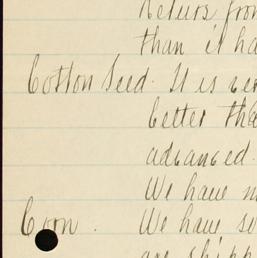 Returs from
than it ha
Cotton Seed. It is ver
better tha
advanced.
We have m
Coon. We have so
are shipp